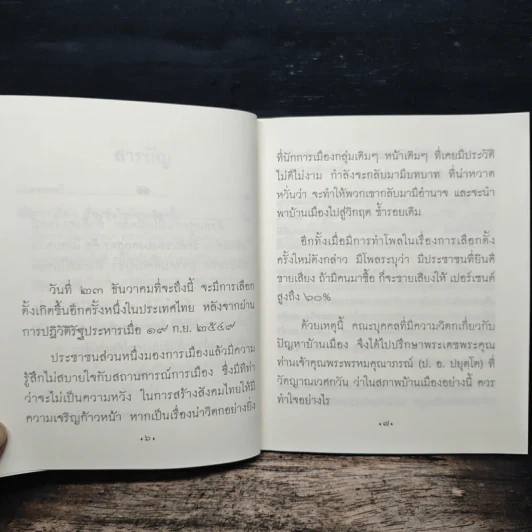 วันที่ ๒๓ ธันวาคมที่จะถึงนี้ จะมีการเลือก
ตั้งเกิดขึ้นอีกครั้งหนึ่งในประเทศไทย หลังจากผ่าน
การปฏิวัติรัฐประหารเมื่อ ๑๙ ก.ย. ๒๕๔๙
ประชาชนส่วนหนึ่งมองการเมืองแล้วมีความ
รู้สึกไม่สบายใจกับสถานการณ์การเมือง ซึ่งมีทีท่า
ว่าจะไม่เป็นความหวัง ในการสร้างสังคมไทยให้มี
ความเจริญก้าวหน้า หากเป็นเรื่องน่าวิตกอย่างยิ่ง
•๖•
ที่นักการเมืองกลุ่มเดิมๆ หน้าเดิมๆ ที่เคยมีประวัติ
ไม่ดีไม่งาม กำลังจะกลับมามีบทบาท ที่น่าหวาด
หวั่นว่า จะทำให้พวกเขากลับมามีอำนาจ และจะนำ
พาบ้านเมืองไปสู่วิกฤต ซ้ำรอยเดิม
อีกทั้งเมื่อมีการทำโพลในเรื่องการเลือกตั้ง
ครั้งใหม่ดังกล่าว มีโพลระบุว่า มีประชาชนที่ยินดี
ขายเสียง ถ้ามีคนมาซื้อ ก็จะขายเสียงให้ เปอร์เซนต์
สูงถึง ๖๐%
ด้วยเหตุนี้ คณะบุคคลที่มีความวิตกเกี่ยวกับ
ปัญหาบ้านเมือง จึงได้ไปปรึกษาพระเดชพระคุณ
ท่านเจ้าคุณพระพรหมคุณาภรณ์ (ป. อ. ปยุตฺโต) ที่
วัดญาณเวศกวัน ว่าในสภาพบ้านเมืองอย่างนี้ ควร
ทำใจอย่างไร
•๗•